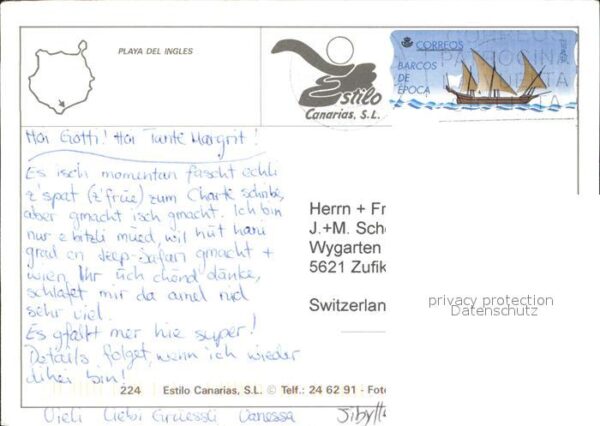 PLAYA DEL INGLES
Estilo
Canarias, S.L.
CORREOS
BARCOS
DE
EPOCA
Hoi Gotti! Hoi Tante Margrit!
Es isch momentan fascht echli
z'spat (z'früe) zum Charte schribe,
aber gmacht isch gmacht. Ich bin
nur e bitzli müed, wil hüt hani
grad en Jeep-Safari gmacht +
wien Ihr üch chönd dänke,
schlafet mir da amel nid
sehr viel.
Es gfallt mer hie super!
Details folget, wenn ich wieder
dihei bin!
Vieli liebi Grüessli Vanessa
Herrn + Fr
J.+M. Sch
Wygarten
5621 Zufik
Switzerlan
privacy protection
Datenschutz
224 Estilo Canarias, S.L. © Telf.: 24 62 91 - Foto